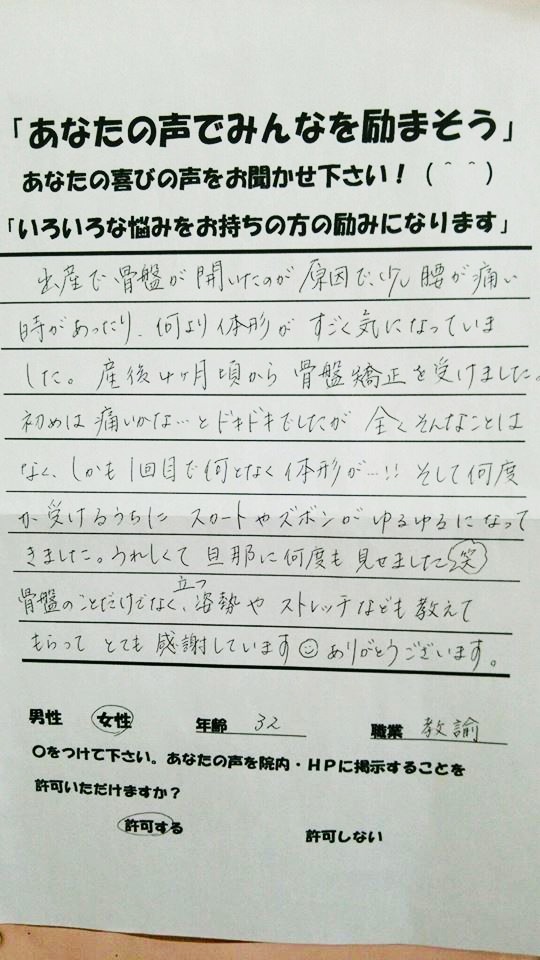 「あなたの声でみんなを励まそう」
あなたの喜びの声をお聞かせ下さい！（＾＾）
「いろいろな悩みをお持ちの方の励みになります」
出産で骨盤が開いたのが原因で、少し腰が痛い
時があったり、何より体形がすごく気になっていま
した。産後4ヶ月頃から骨盤矯正を受けました。
初めは痛いかな…とドキドキでしたが全くそんなことは
なく、しかも1回目で何となく体形が…!! そして何度
か受けるうちにスカートやズボンがゆるゆるになって
きました。うれしくて旦那に何度も見せました笑
骨盤のことだけでなく、立つ姿勢やストレッチなども教えて
もらってとても感謝しています☺ありがとうございます。
男性 女性 年齢 32 職業 教諭
〇をつけて下さい。あなたの声を院内・ＨＰに掲示することを
許可いただけますか？
許可する 許可しない